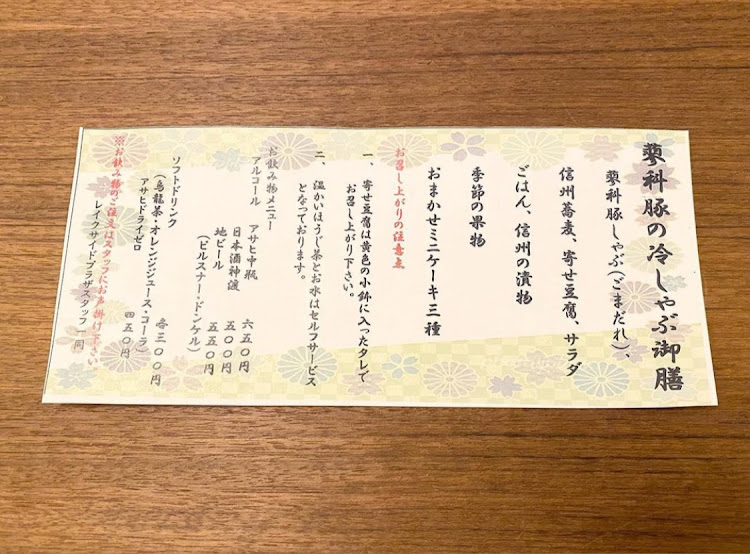 蓼科豚の冷しゃぶ御膳
蓼科豚しゃぶ(ごまだれ)、
信州蕎麦、寄せ豆腐、サラダ
ごはん、信州の漬物
季節の果物
おまかせミニケーキ三種
お召し上がりの注意点
一、 寄せ豆腐は黄色の小鉢に入ったタレで
お召し上がり下さい。
二、 温かいほうじ茶とお水はセルフサービス
となっております。
お飲み物メニュー
アルコール アサヒ中瓶 六五〇円
日本酒神渡 五〇〇円
地ビール 五五〇円
(ピルスナー・ドンケル)
ソフトドリンク
(烏龍茶・オレンジジュース・コーラ) 各三〇〇円
アサヒドライゼロ 四五〇円
※お飲み物のご注文はスタッフにお声掛け下さい
レイクサイドプラザスタッフ一同